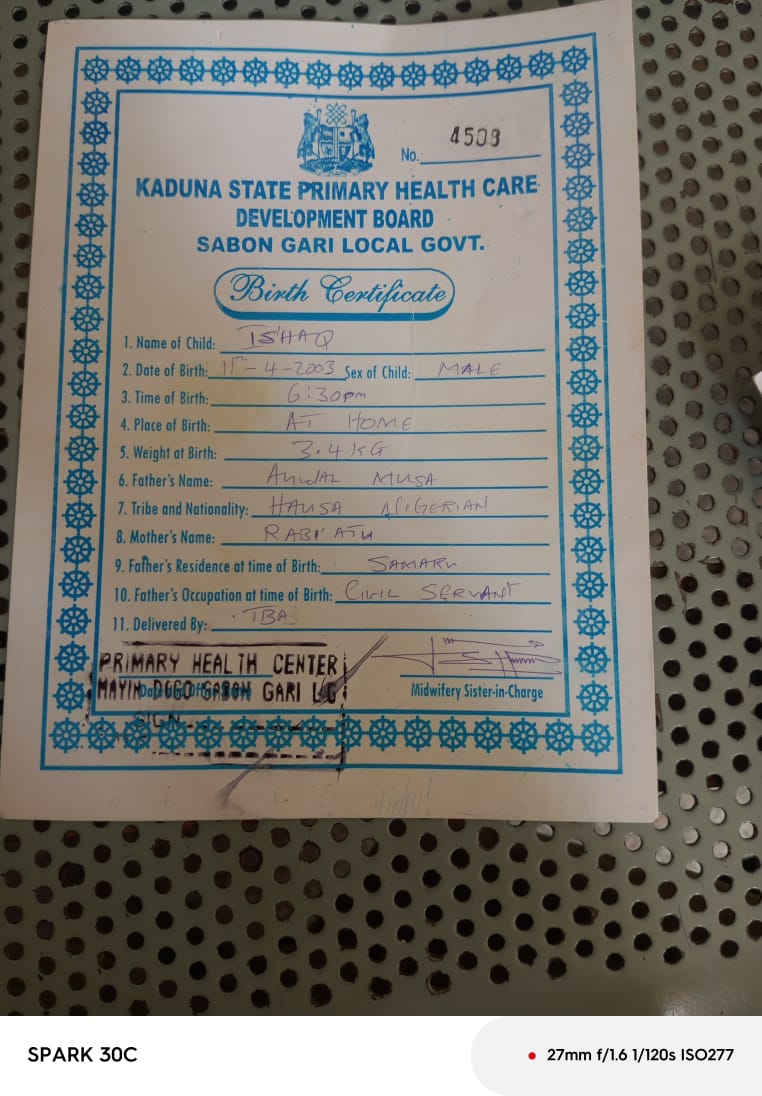 No. 4508
KADUNA STATE PRIMARY HEALTH CARE
DEVELOPMENT BOARD
SABON GARI LOCAL GOVT.
Birth Certificate
1. Name of Child: ISHAQ
2. Date of Birth: 11th-4-2003 Sex of Child: MALE
3. Time of Birth: 6:30pm
4. Place of Birth: AT HOME
5. Weight at Birth: 3.4KG
6. Father's Name: MUSA
7. Tribe and Nationality: HAUSA NIGERIAN
8. Mother's Name: RABI'ATU
9. Father's Residence at time of Birth: SAMARU
10. Father's Occupation at time of Birth: CIVIL SERVANT
11. Delivered By: TBA
PRIMARY HEALTH CENTER
GARI LG
SIGN
Midwifery Sister-in-Charge
SPARK 30C
27mm f/1.6 1/120s ISO277